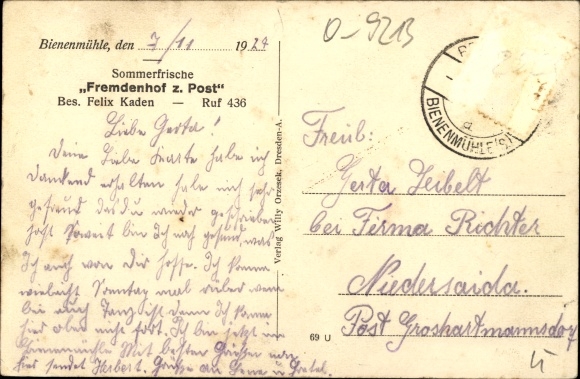 Bienenmühle, den 7/11 1924
Sommerfrische
„Fremdenhof z. Post"
Bes. Felix Kaden — Ruf 436
Liebe Gerta!
Deine Liebe Karte habe ich
dankend erhalten habe mich sehr
gefreud das du wieder geschrieben
hast Soweit bin Ich noch gesund, was
Ich auch von Dir hoffe. Ich komme
vieleicht Sonntag mal rüber wenn
bei euch Tanz ist denn Ich komme
hier aber nicht fort. Ich bin jetzt in
Bienenmühle Mit besten Grüßen
hier sendet Herbert. Grüße an u.
Verlag Willy Orzesek, Dresden-A.
69 U
O-9213
BIENENMÜHLE
Freib:
Gerta Seibelt
bei Firma Richter
Niedersaida.
Post Groshartmannsdorf